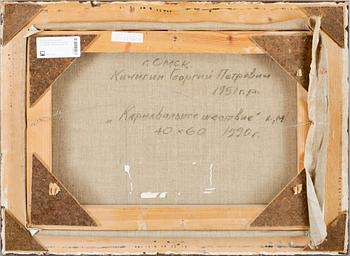 г. Омск
Кичигин Георгий Петрович
1951 г.р.
„Карнавальное шествие" х.м.
40 × 60 1990 г.